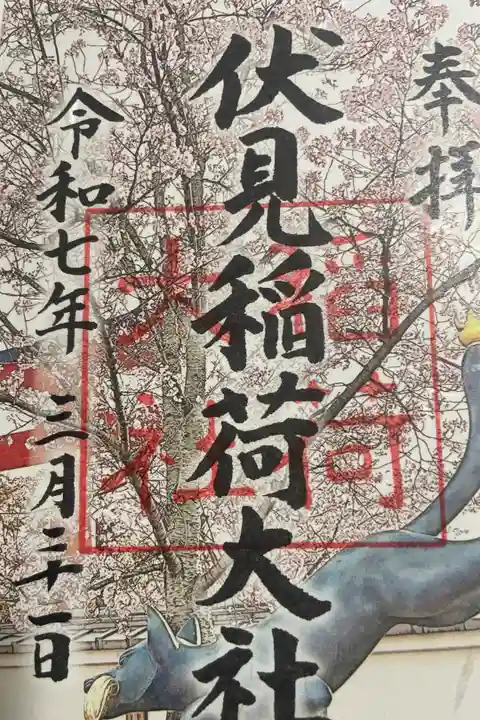 奉拝
伏見稲荷大社
令和七年 三月三十一日
稲荷
大社